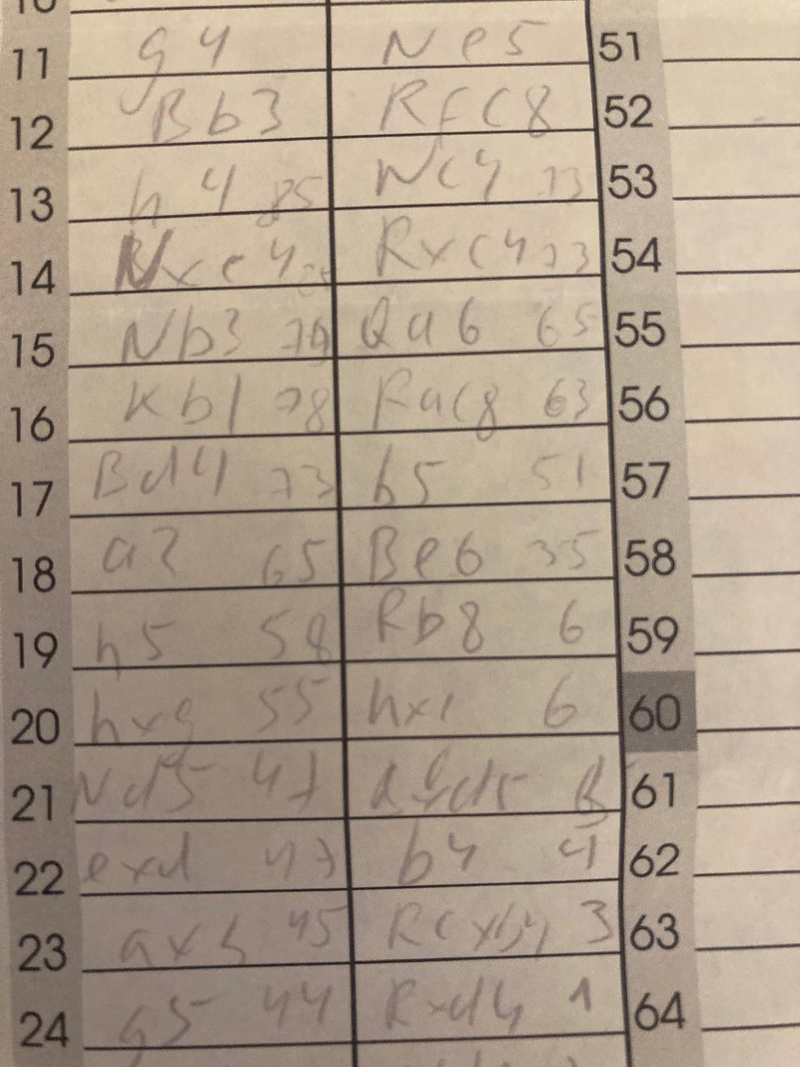 11 g4 Ne5 51
12 Bb3 Rfc8 52
13 h4 85 Nc4 73 53
14 Nxc4 Rxc4 73 54
15 Nb3 79 Qa6 65 55
16 Kb1 78 Rac8 63 56
17 Bd4 73 b5 51 57
18 a3 65 Be6 35 58
19 h5 58 Rb8 6 59
20 hxg 55 hxg 6 60
21 Nd5 47 61
22 exd 47 b4 4 62
23 axb 45 Rcxb4 3 63
24 g5 44 Rxd4 1 64